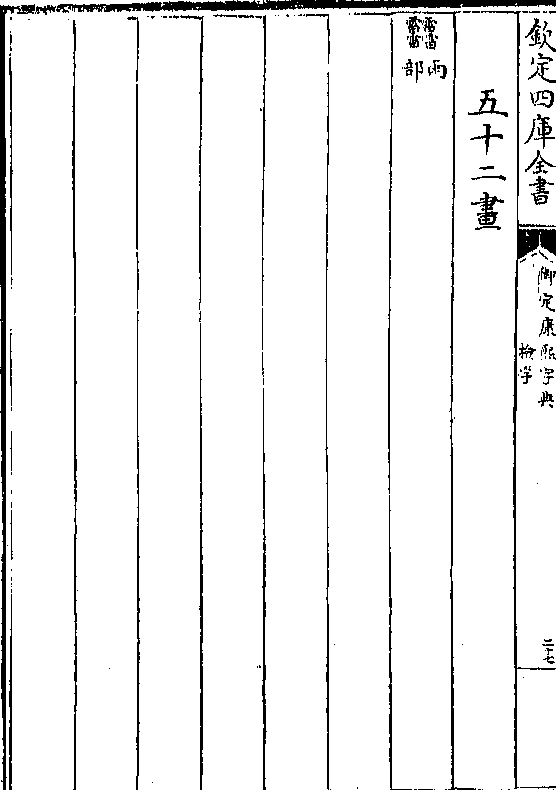 欽定四庫全書
御定康熙字典
檢字
五十二畫
䨻雨部